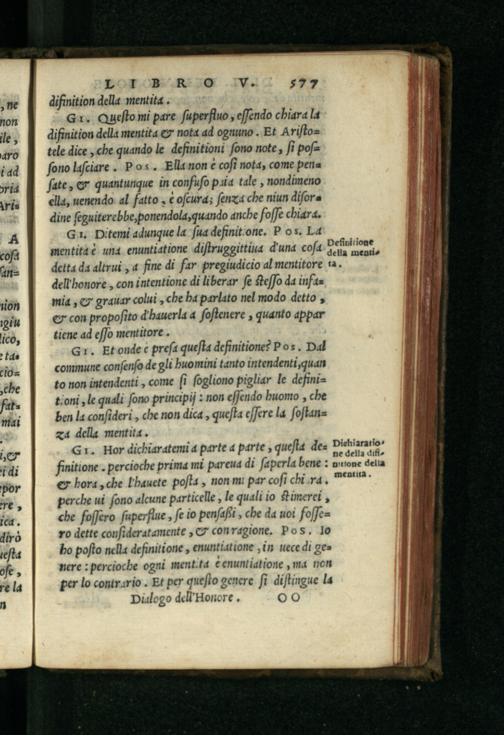 LIBRO V. 577
difinition della mentita.
GI. Questo mi pare superfluo, essendo chiara la
difinition della mentita & nota ad ognuno. Et Aristo=
tele dice, che quando le definitioni sono note, si pos=
sono lasciare. POS. Ella non è così nota, come pen=
sate, & quantunque in confuso paia tale, nondimeno
ella, uenendo al fatto, è oscura; senza che niun disor=
dine seguiterebbe, ponendola, quando anche fosse chiara.
GI. Ditemi adunque la sua definitione. POS. La
mentita è una enuntiatione distruggittiua d'una cosa
detta da altrui, a fine di far pregiudicio al mentitore
dell'honore, con intentione di liberar se stesso da infa=
mia, & grauar colui, che ha parlato nel modo detto,
& con proposito d'hauerla a sostenere, quanto appar
tiene ad esso mentitore.
Definitione
della menti=
ta.
GI. Et onde è presa questa definitione? POS. Dal
commune consenso de gli huomini tanto intendenti, quan
to non intendenti, come si sogliono pigliar le defini=
tioni, le quali sono principij: non essendo huomo, che
ben la consideri, che non dica, questa essere la sostan=
za della mentita.
GI. Hor dichiaratemi a parte a parte, questa de=
finitione. percioche prima mi pareua di saperla bene:
& hora, che l'hauete posta, non mi par così chiara.
perche ui sono alcune particelle, le quali io stimerei,
che fossero superflue, se io pensassi, che da uoi fosse=
ro dette consideratamente, & con ragione. POS. Io
ho posto nella definitione, enuntiatione, in uece di ge=
nere: percioche ogni mentita è enuntiatione, ma non
per lo contrario. Et per questo genere si distingue la
Dichiaratio=
ne della difi=
nitione della
mentita.
Dialogo dell'Honore. OO